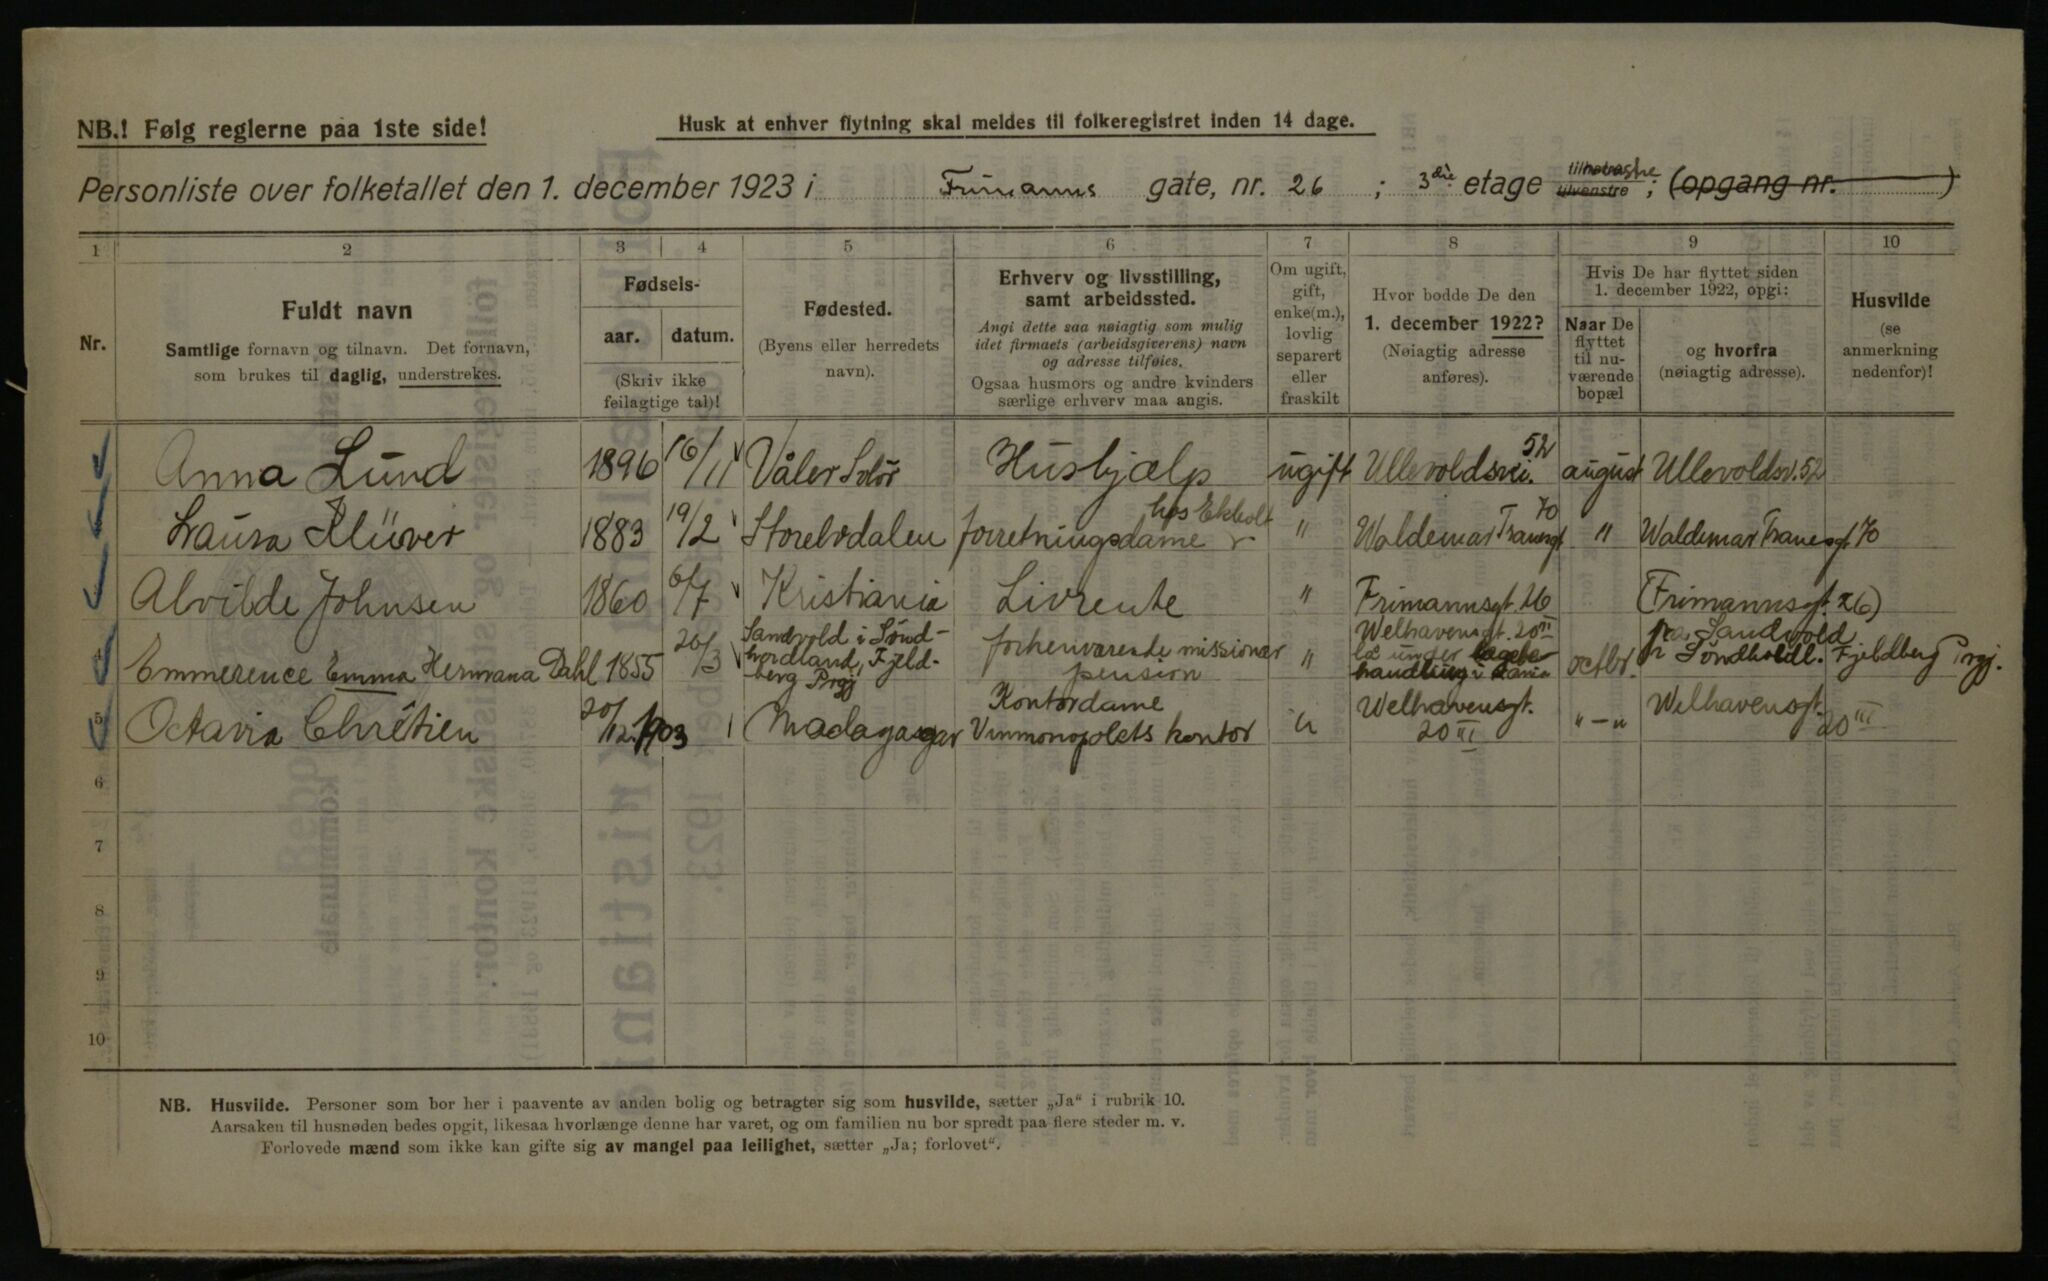 NB.! Følg reglerne paa 1ste side!
Husk at enhver flytning skal meldes til folkeregistret inden 14 dage.
Personliste over folketallet den 1. december 1923 i Frimanns gate, nr. 26 ; 3die etage tilvenstre ; (opgang nr. )
1 2 3 4 5 6 7 8 9 10
Nr.
Fuldt navn
Samtlige fornavn og tilnavn. Det fornavn,
som brukes til daglig, understrekes.
Fødsels-
aar. datum.
(Skriv ikke
feilagtige tal)!
Fødested.
(Byens eller herredets
navn).
Erhverv og livsstilling,
samt arbeidssted.
Angi dette saa nøiagtig som mulig
idet firmaets (arbeidsgiverens) navn
og adresse tilføies.
Ogsaa husmors og andre kvinders
særlige erhverv maa angis.
Om ugift,
gift,
enke(m.),
lovlig
separert
eller
fraskilt
Hvor bodde De den
1. december 1922?
(Nøiagtig adresse
anføres).
Hvis De har flyttet siden
1. december 1922, opgi:
Naar De
flyttet
til nu-
værende
bopæl
og hvorfra
(nøiagtig adresse).
Husvilde
(se
anmerkning
nedenfor)!
Anna Lund 1896 16/11 Våler Solør Hushjælp ugift Ullevoldsvei. 52 august Ullevoldsv. 52
Laura Klüver 1883 19/2 Storelvdalen forretningsdame hos Ekholt " Waldemar Tranesgt 70 " Waldemar Tranesgt 70
Alvilde Johnsen 1860 6/7 Kristiania Livrente " Frimannsgt. 26 (Frimannsgt. 26)
4 Emmerence Emma Hermana Dahl 1855 20/3 Sandvold i Sönd-
hordland, Fjeld-
berg Prgj
forhenværende missionær
pension
" Welhavensgt. 20 III
under læge-
handling i
octbr. Sandvold
Söndhordl. Fjeldberg Prgj.
5 Octavia Chrêtien 20/12 1903 Madagaskar Kontordame
Vinmonopolets kontor
" Welhavensgt.
20 III
"–" Welhavensgt.
20 III
6
7
8
9
10
NB. Husvilde. Personer som bor her i paavente av anden bolig og betragter sig som husvilde, sætter „Ja“ i rubrik 10.
Aarsaken til husnøden bedes opgit, likesaa hvorlænge denne har varet, og om familien nu bor spredt paa flere steder m. v.
Forlovede mænd som ikke kan gifte sig av mangel paa leilighet, sætter „Ja; forlovet“.